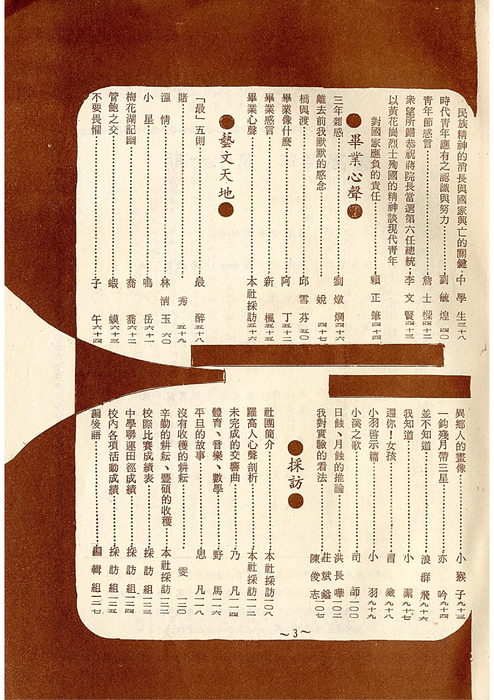 民族精神的消長與國家興亡的關鍵 中學生 三十八
時代青年應有之認識與努力 劉敏煌 四十
青年節感言 詹士樑 四十二
衆望所歸恭祝蔣院長當選第六任總統 李文賢 四十三
以黃花崗烈士殉國的精神談現代青年
對國家應負的責任 賴正筆 四十四
●畢業心聲●
三年雜感 劉燉炯 四十六
離去前我默默的感念 銳 四十七
橋與渡 邱雪芬 五十
畢業像什麼 阿丁 五十二
畢業感言 新楓 五十五
畢業心聲 本社採訪 五十六
●藝文天地●
「最」五則 最醉 五十八
賭 秀 五十九
溫情 林清玉 六十
小星 鳴岳 六十一
梅花湖記遊 喬喬 六十二
管飽之交 蝦蟆 六十三
不要畏懼 子午 六十四
異鄉人的畫像 小猴子 九十三
一鈎殘月帶三星 亦吟 九十四
並不知道 浪群飛 九十六
我知道 小潔 九十七
還你!女孩 眉羲 九十八
小羽啓示篇 小羽 九十九
小溪之歌 司師 一○○
日蝕、月蝕的推論 洪長曄 一○二
我對實驗的看法 莊斌鎰
陳俊志 一○七
●採訪●
社團簡介 本社採訪 一○八
羅高人心聲剖析 本社採訪 一一二
未完成的交響曲 乃凡 一一四
體育、音樂、數學 野馬 一一六
平旦的故事 思凡 一一八
沒有收穫的耕耘 雯 一二○
辛勤的耕耘、豐碩的收穫 本社採訪 一二二
校際比賽成績表 採訪組 一二三
中學聯運田徑成績 採訪組 一二四
校內各項活動成績 採訪組 一二五
編後語 編輯組 一二七
~3~